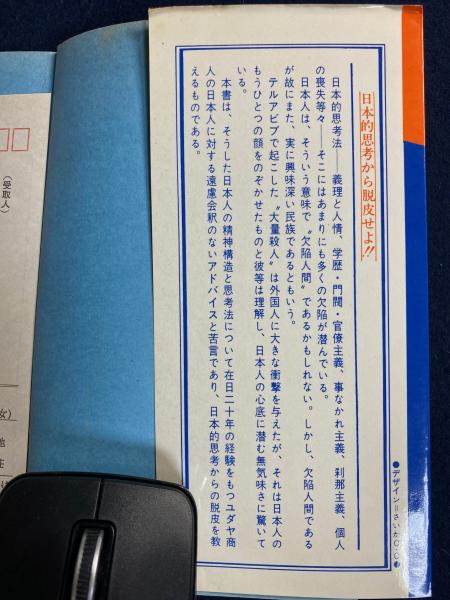 日本的思考から脱皮せよ!!
日本的思考法——義理と人情、学歴・門閥・官僚主義、事なかれ主義、刹那主義、個人
の喪失等々——そこにはあまりにも多くの欠陥が潜んでいる。
日本人は、そういう意味で〝欠陥人間〟であるかもしれない。しかし、欠陥人間である
が故にまた、実に興味深い民族であるともいう。
テルアビブで起こした〝大量殺人〟は外国人に大きな衝撃を与えたが、それは日本人の
もうひとつの顔をのぞかせたものと彼等は理解し、日本人の心底に潜む無気味さに驚いて
いる。
本書は、そうした日本人の精神構造と思考法について在日二十年の経験をもつユダヤ商
人の日本人に対する遠慮会釈のないアドバイスと苦言であり、日本的思考からの脱皮を教
えるものである。
●デザイン=さいかO・O●
(受取人)
女)
地